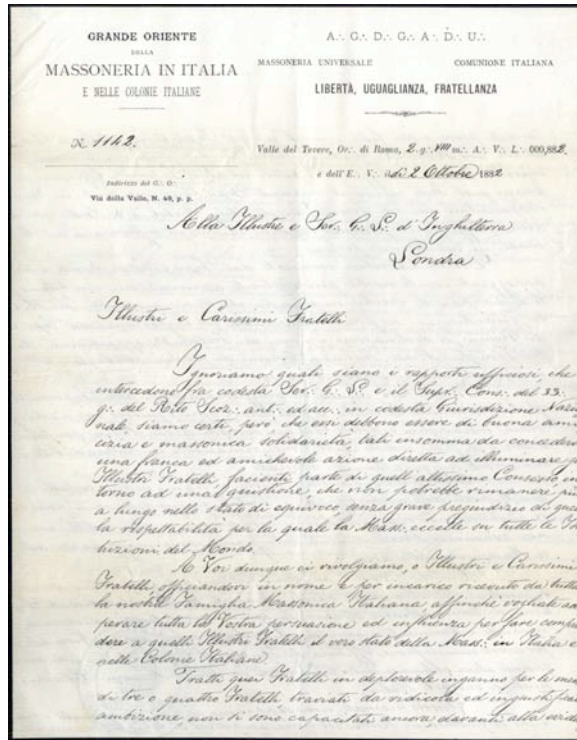 GRANDE ORIENTE
DELLA
MASSONERIA IN ITALIA
E NELLE COLONIE ITALIANE
A∴ G∴ D∴ G∴ A∴ D∴ U∴
MASSONERIA UNIVERSALE COMUNIONE ITALIANA
LIBERTÀ, UGUAGLIANZA, FRATELLANZA
N. 1142.
Valle del Tevere, Or∴ di Roma, 2. g∴ VIII m∴ A∴ V∴ L∴ 000,882
e dell'E∴ V∴ il dì 2 Ottobre 1882
Indirizzo del G∴ O∴
Via della Valle, N. 49, p. p.
Alla Illustre e Ser∴ G∴ L∴ d'Inghilterra
Londra
Illustri e Carissimi Fratelli
Ignoriamo quali siano i rapporti ufficiosi, che
intercedono fra codesta Ser∴ G∴ L∴ e il Supr∴ Cons∴ del 33∴
g∴ del Rito Scoz∴ ant∴ ed acc∴ in codesta Giurisdizione Nazio
nale, siamo certi, però, che essi debbono essere di buona ami
cizia e massonica solidarietà, tali insomma da concedere
una franca ed amichevole azione diretta ad illuminare
Illustri Fratelli, facienti parte di quell'altissimo Consesso, in
torno ad una quistione, che non potrebbe rimanere più
a lungo nello stato di equivoco, senza grave pregiudizio di
la rispettabilità per la quale la Mass∴ eccelle su tutte le
tuzioni del Mondo.
A Voi dunque ci rivolgiamo, o Illustri e Carissimi
Fratelli, officiandovi in nome e per incarico ricevuto da tutta
la nostra Famiglia Massonica Italiana, affinchè vogliate ado
perare tutta la Vostra persuasione ed influenza per fare compren
dere a quelli Illustri Fratelli il vero stato della Mass∴ in Italia e
nelle Colonie Italiane.
Tratti quei Fratelli in deplorevole inganno per le
di tre o quattro Fratelli, traviati da ridicola ed
ambizione, non si sono capacitati ancora, davanti alla